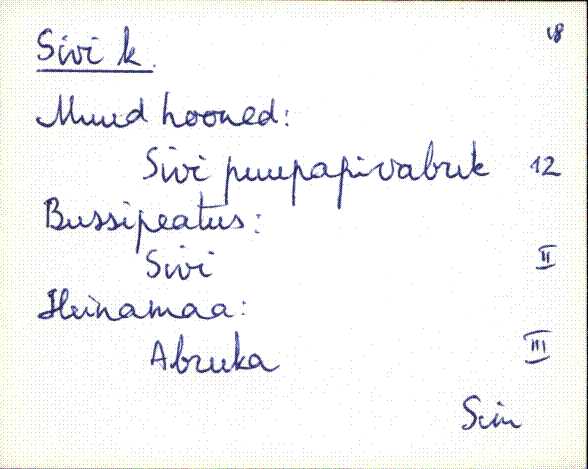 Sivi k. 18
Muud hooned:
Sivi puupapivabrik 12
Bussipeatus:
Sivi II
Heinamaa:
Abruka III